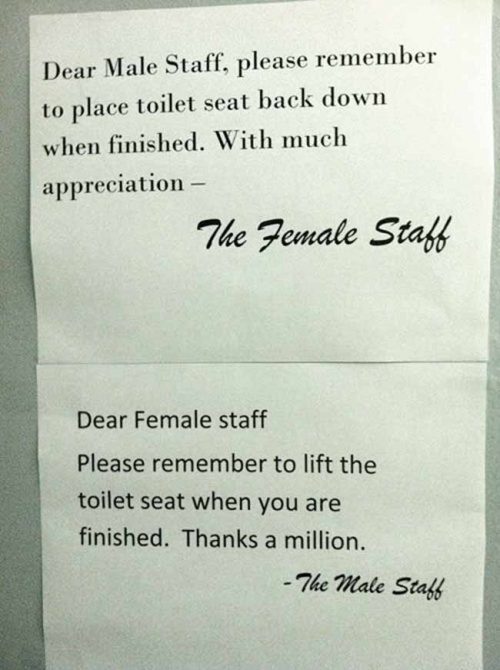 Dear Male Staff, please remember
to place toilet seat back down
when finished. With much
appreciation –
The Female Staff
Dear Female staff
Please remember to lift the
toilet seat when you are
finished. Thanks a million.
- The Male Staff